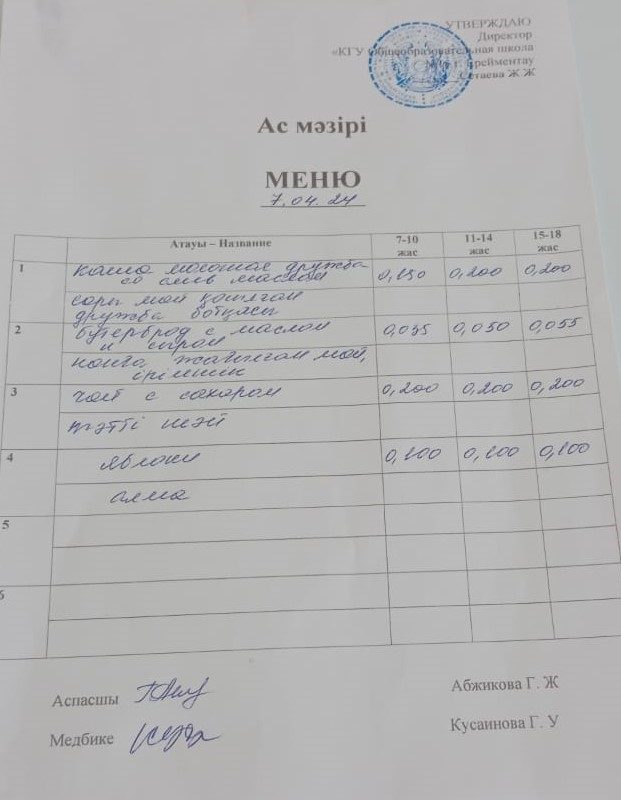 УТВЕРЖДАЮ
Директор
«КГУ Общеобразовательная школа
г. Ерейментау
Ж.Ж
Ас мәзірі
МЕНЮ
7.04.24
Атауы – Название 7-10 жас 11-14 жас 15-18 жас
1 каша молочная дружба 0,150 0,200 0,200
со слив маслом
сары май қосылған
дружба ботқасы
2 бутерброд с маслом 0,035 0,050 0,055
и сыром
нанға жағылған май,
ірімшік
3 чай с сахаром 0,200 0,200 0,200
тәтті шәй
4 яблоки 0,100 0,100 0,100
алма
5
6
Аспасшы Абжикова Г. Ж
Медбике Кусаинова Г. У